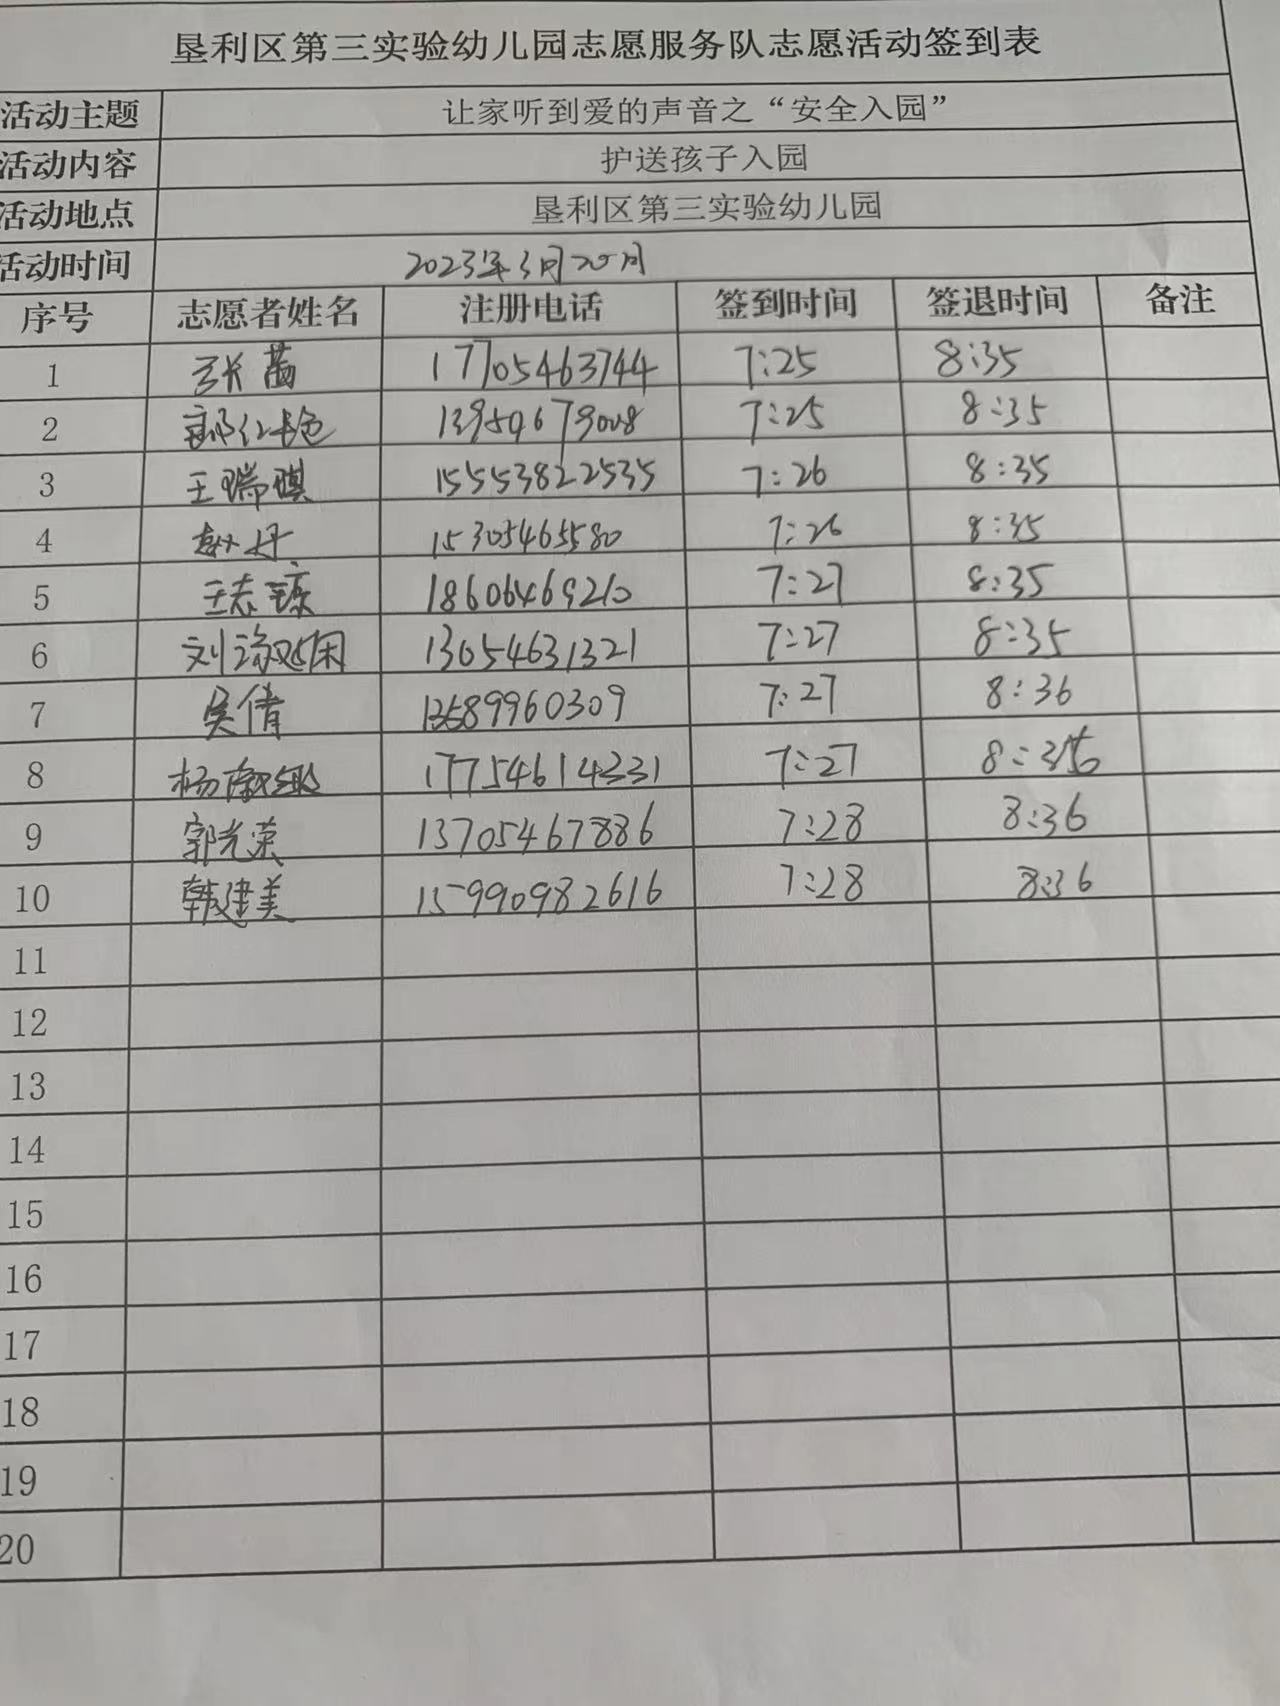 垦利区第三实验幼儿园志愿服务队志愿活动签到表
活动主题 让家听到爱的声音之“安全入园”
活动内容 护送孩子入园
活动地点 垦利区第三实验幼儿园
活动时间 2023年3月20日
序号 志愿者姓名 注册电话 签到时间 签退时间 备注
1 张茜 17705463744 7:25 8:35
2 13954679008 7:25 8:35
3 王瑞琪 15553822535 7:26 8:35
4 赵丹 15305465580 7:26 8:35
5 王志琼 18606469210 7:27 8:35
6 刘 13054631321 7:27 8:35
7 吴倩 13589960309 7:27 8:36
8 杨 17754614331 7:27 8:36
9 郭光荣 13705467886 7:28 8:36
10 韩建美 15990982616 7:28 8:36
11
12
13
14
15
16
17
18
19
20